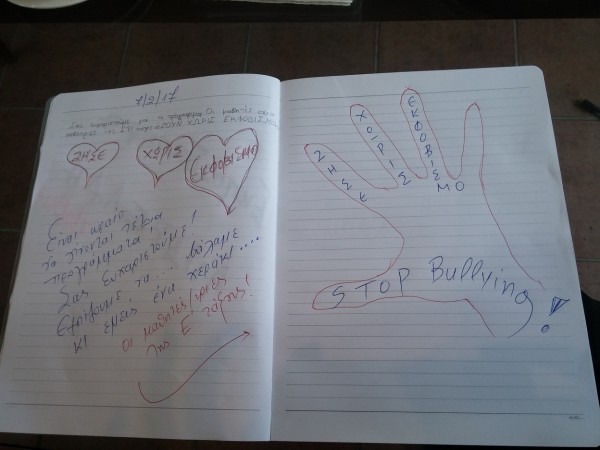 7/2/17
Σας ευχαριστούμε για το πρόγραμμα. Οι μαθητές και οι
της ΣΤ΄ τάξης ΧΩΡΙΣ ΕΚΦΟΒΙΣΜΟ
ΖΗΣΕ
ΧΩΡΙΣ
Εκφοβισμό
Είναι ωραίο
να γίνονται τέτοια
προγράμματα!
Σας Ευχαριστούμε!
το... βάλαμε
κι εμείς ένα χεράκι....
οι μαθητές/τριες
της Ε΄ τάξης!
ΖΗΣΕ
ΧΩΡΙΣ
ΕΚΦΟΒΙΣ
ΜΟ
STOP Bullying!